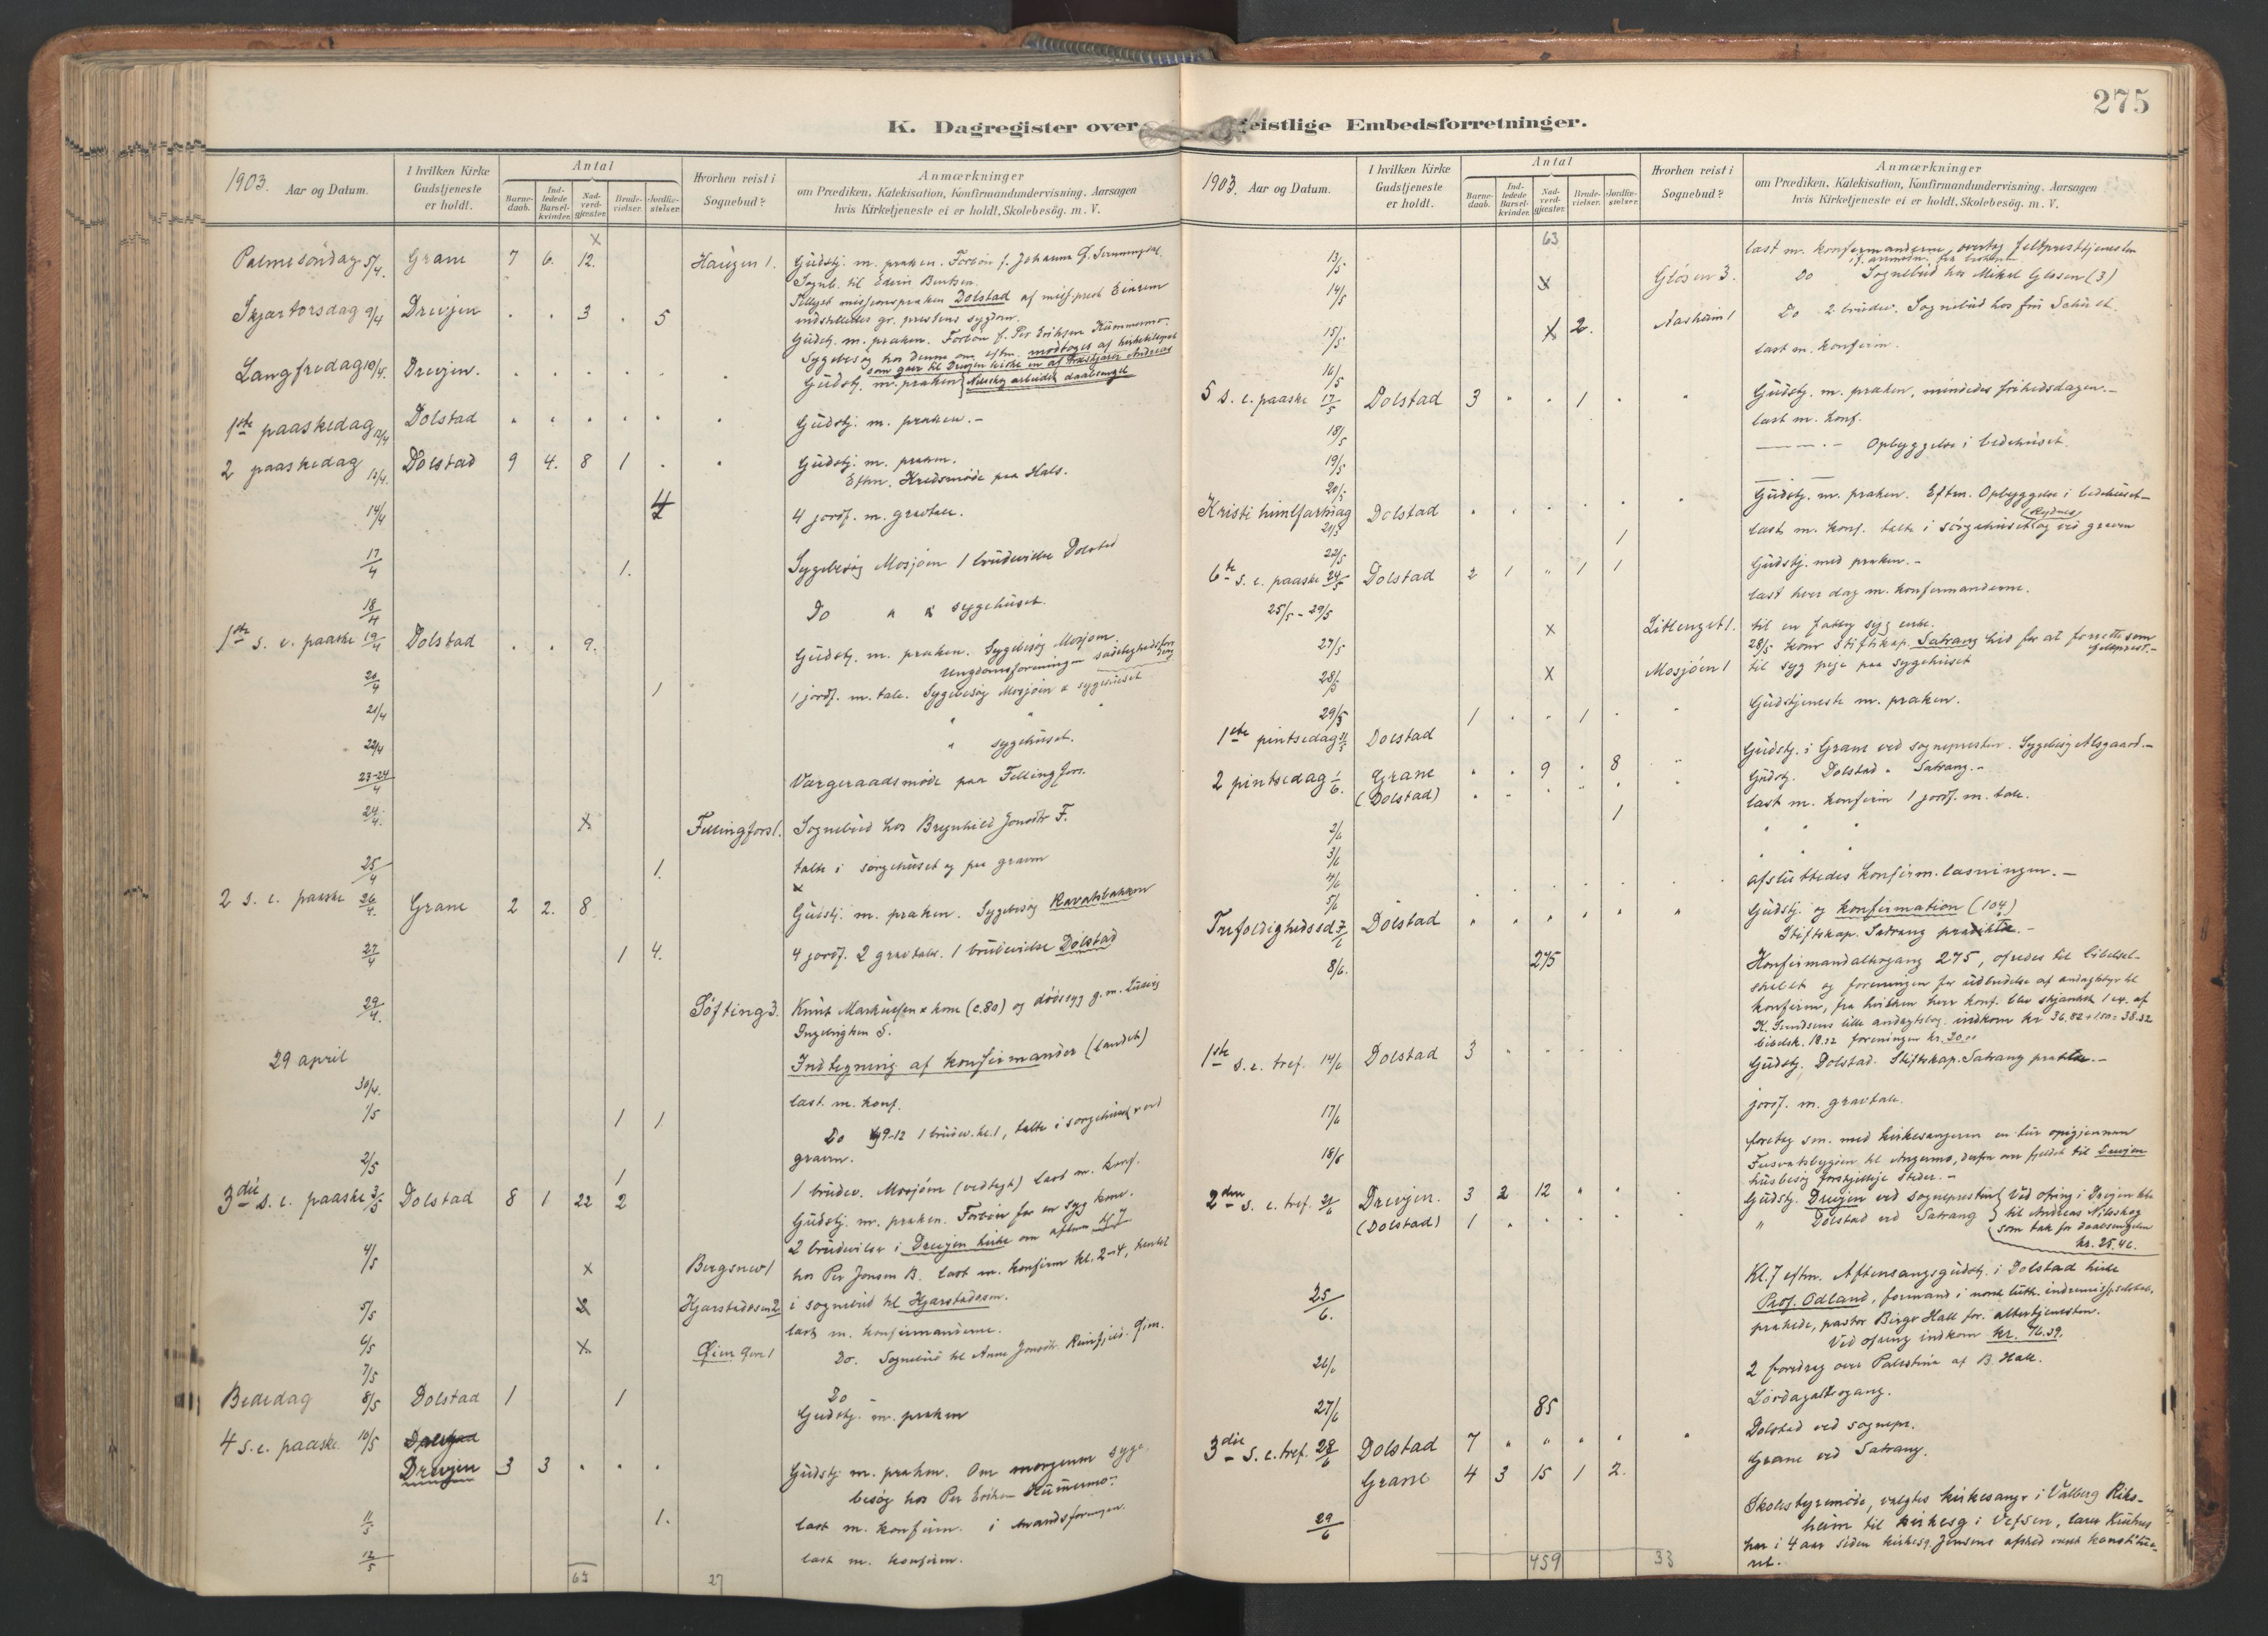 275
K. Dagregister over geistlige Embedsforretninger.
1903. Aar og Datum.
I hvilken Kirke Gudstjeneste er holdt.
Antal
Barne-daab.
Ind-ledede Barsel-kvinder.
Nad-verd-gjester.
Brude-vielser.
Jordfæ-stelser.
Hvorhen reist i Sognebud?
Anmærkninger
om Prædiken, Katekisation, Konfirmandundervisning. Aarsagen
hvis Kirketjeneste ei er holdt. Skolebesög. m. V.
Palmesöndag 5/4. Grane 7 6. 12. x Haugen 1. Gudstj. m. præken. Forbön f. Johanna
Sogneb. til Edvin Bentsen.
Skjærtorsdag 9/4 Drevjen . . 3 . 5 Tillyst missionspræken Dolstad af miss.prest Einrem
indstilledes gr. prestens sygdom.
Gudstj. m. præken. Forbön f. Per Eriksen Kummermo.
Sygebesög hos denne om eftm. modtoges af kirketilsynet
Langfredag 10/4. Drevjen. . . . . . . Gudstj. m. præken
1ste paaskedag 12/4 Dolstad . . . . . . Gudstj. m. præken. -
2 paaskedag 13/4. Dolstad 9 4. 8 1 . . Gudstj. m. præken.
Eftm. Kredsmöde paa Hals.
14/4 4 4 jordf. m. gravtale.
17/4 1. Sygebesög Mosjöen 1 brudevielse Dolstad
18/4 Do " & sygehuset.
1ste s. e. paaske 19/4 Dolstad . . 9. Gudstj. m. præken. Sygebesög Mosjöen.
Ungdomsforeningen
20/4 1 1 jordf. m. tale. Sygebesög Mosjöen & sygehuset
21/4 " " "
22/4 " sygehuset.
23-24/4 Vergeraadsmöde paa Fellingfors.
24/4. x Fellingfors 1. Sognebud hos Brynhild Jonsdtr F.
25/4 1. talte i sörgehuset og paa graven
2 s. e. paaske 26/4. Grane 2 2. 8 Gudstj. m. præken. Sygebesög
27/4 1 4. 4 jordf. 2 gravtaler. 1 brudevielse Dolstad
29/4. Söfting 3. Knut Markussen & kone (c. 80) og dödssyg g. m. Ludvig
Ingebrigtsen S.
29 april Indtegning af konfirmander (landet)
30/4. læst m. konf.
1/5 1 1 Do kl 9-12 1 brudev. kl. 1, talte i sorgehuset & ved
graven.
2/5 1 1 brudev. Mosjöen (vedtægt) læst m. konf.
3die s. e. paaske 3/5 Dolstad 8 1 22 2 Gudstj. m. præken. Forbön for en syg kone.
2 brudevielser i Drevjen kirke om aften kl 7
4/5 x Bergsnev 1 hos Per Jonsen B. læst m. konfirm kl. 2-4, hentet
5/5 x Kjærstadosen 2 i sognebud til Kjærstadosen.
læst m. konfirmanderne.
6/5 x Öien 1 Do. Sognebud til Anne Jonsdtr.
7/5 Do
Bededag 8/5 Dolstad 1 1 Gudstj. m. præken
4 s. e. paaske. 10/5 Dolstad
Drevjen 3 3 . . . Gudstj. m. præken. Om morgenen syge-
besög hos Per Eriksen Kummermo.
11/5 1. læst m. konfirm. i
12/5 læst m. konfirm.
63 27
1903. Aar og Datum.
I hvilken Kirke Gudstjeneste er holdt.
Antal
Barne-daab.
Ind-ledede Barsel-kvinder.
Nad-verd-gjester.
Brude-vielser.
Jordfæ-stelser.
Hvorhen reist i Sognebud?
Anmærkninger
om Prædiken, Katekisation, Konfirmandundervisning. Aarsagen
hvis Kirketjeneste ei er holdt. Skolebesög. m. V.
63
13/5 læst m. konfirmanderne, overtog feltpresttjenesten
14/5 x Glösen 3. Do Sognebud hos Mikal Glösen (3)
15/5 x 2. Aasheim 1 Do 2 brudev. Sognebud hos fru
16/5 læst m. konfirm.
5 s. e. paaske 17/5 Dolstad 3 . . 1 . . Gudstj. m. præken, mindedes frihedsdagen. -
18/5 læst m. konf.
19/5 — — . — Opbyggelse i bedehuset.
20/5
Kristi himlfartsdag 21/5 Dolstad . . . . . . Gudstj. m. præken. Eftm. Opbyggelse i bedehuset -
22/5 1 læst m. konf. talte i sörgehuset (Rynes) og ved graven
6te s. e. paaske 24/5 Dolstad 2 1 " 1 1 Gudstj. med præken. -
25/5 - 29/5 læst hver dag m. konfirmanderne.
27/5 x Litlenget 1. til en fattig syg enke.
28/5 kom Stiftskap. Satrang hid for at forrette som feltprest. -
28/5 x Mosjöen 1 til syg pige paa sygehuset
29/5
1ste pintsedag 31/5 Dolstad 1 . . 1 . " Gudstjeneste m. præken.
2 pintsedag 1/6. Grane . . 9 . 8 " Gudstj. i Grane ved sognepresten. Sygebesög Alsgaard. -
(Dolstad) . . . . . . Gudstj. Dolstad " Satrang. -
2/6 1 læst m. konfirm 1 jordf. m. tale.
3/6 " " "
4/6 " " "
5/6 afsluttedes konfirm. læsningen. -
Trefoldighedssd 7/6 Dolstad " " " " " " Gudstj. og konfirmation (104)
Stiftskap. Satrang prædikte. -
8/6. 275 Konfirmandaltergang 275, ofredes til bibelsel-
skabet og foreningen for udbredelse af andagtsbger til
konfirm, fra hvilken hver konf. blev skjænket 1 ex. af
K. Gundsens lille andagtsbog. indkom kr 36.82 + 1.50 = 38.32
bibelsk. 18.32 foreningen kr. 20.00
1ste s. e. tref. 14/6 Dolstad 3 . . . . Gudstj. Dolstad. Stiftskap. Satrang prækte. -
17/6 jordf. m. gravtale.
18/6 foretog sm. med kirkesangeren en tur opigjennem
Fusvatsbygden til Angermo, derfra over fjeldet til Drevjen
husbesög forskjellige steder. -
2den s. e. tref. 21/6 Drevjen. 3 2 12 . . . Gudstj. Drevjen ved sognepresten Ved ofring i Drevjen kke
(Dolstad) 1 . . . . . " Dolstad ved Satrang til Andreas Nilsskog
som tak for daabsengelen
kr. 25.46.
25/6. Kl. 7 eftm. Aftensangsgudstj. i Dolstad kirke
Prof. Odland, formand i norsk luth. indremissionsselskab,
prækede, pastor Birger Hall for. altertjenesten.
Ved ofring indkom kr. 76.39.
26/6 2 foredrag over Palestina af B. Hall.
27/6 85 Lördagaltergang.
3die s. e. tref. 28/6 Dolstad 7 " " " " " Dolstad ved sognepr.
Grane 4 3 15 1 2. Grane ved Satrang.
29/6 Skolestyremöde, valgtes kirkesanger i Valberg Riks-
heim til kirkesg i Vefsen, lærer
har i 4 aar siden kirkesg. Jensens afsked været konstitue-
ret.
459 33